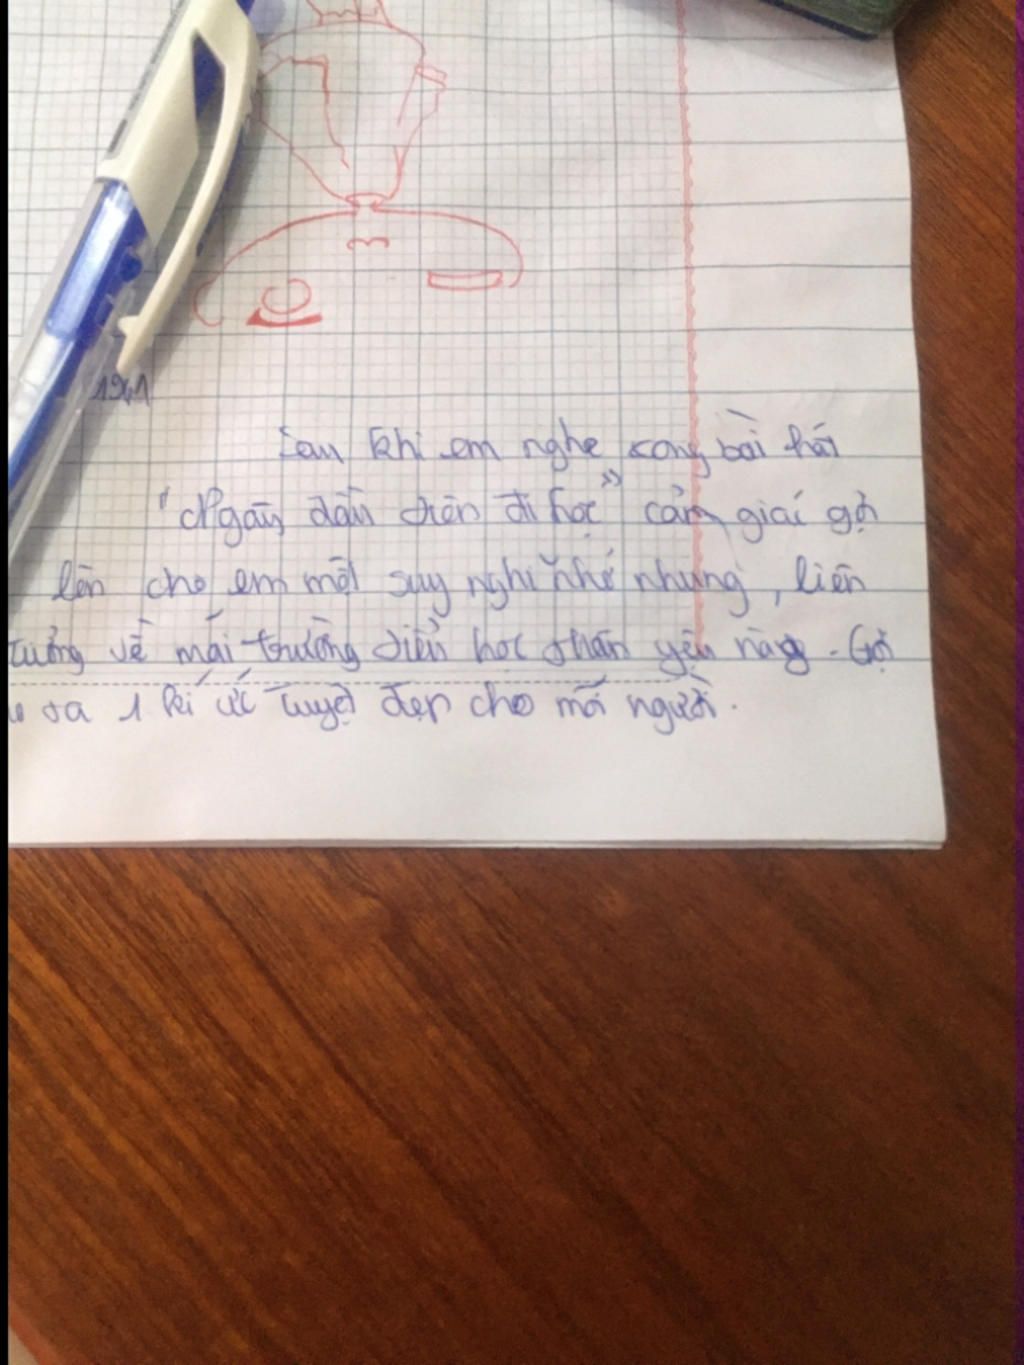 1941
Sau khi em nghe xong bài hát
"Ngày đầu tiên đi học" cảm giác gợi
lên cho em một suy nghĩ nhớ nhung, liên
tưởng về mái trường tiểu học thân yêu này. Gợi
ra 1 kí ức tuyệt đẹp cho mỗi người.